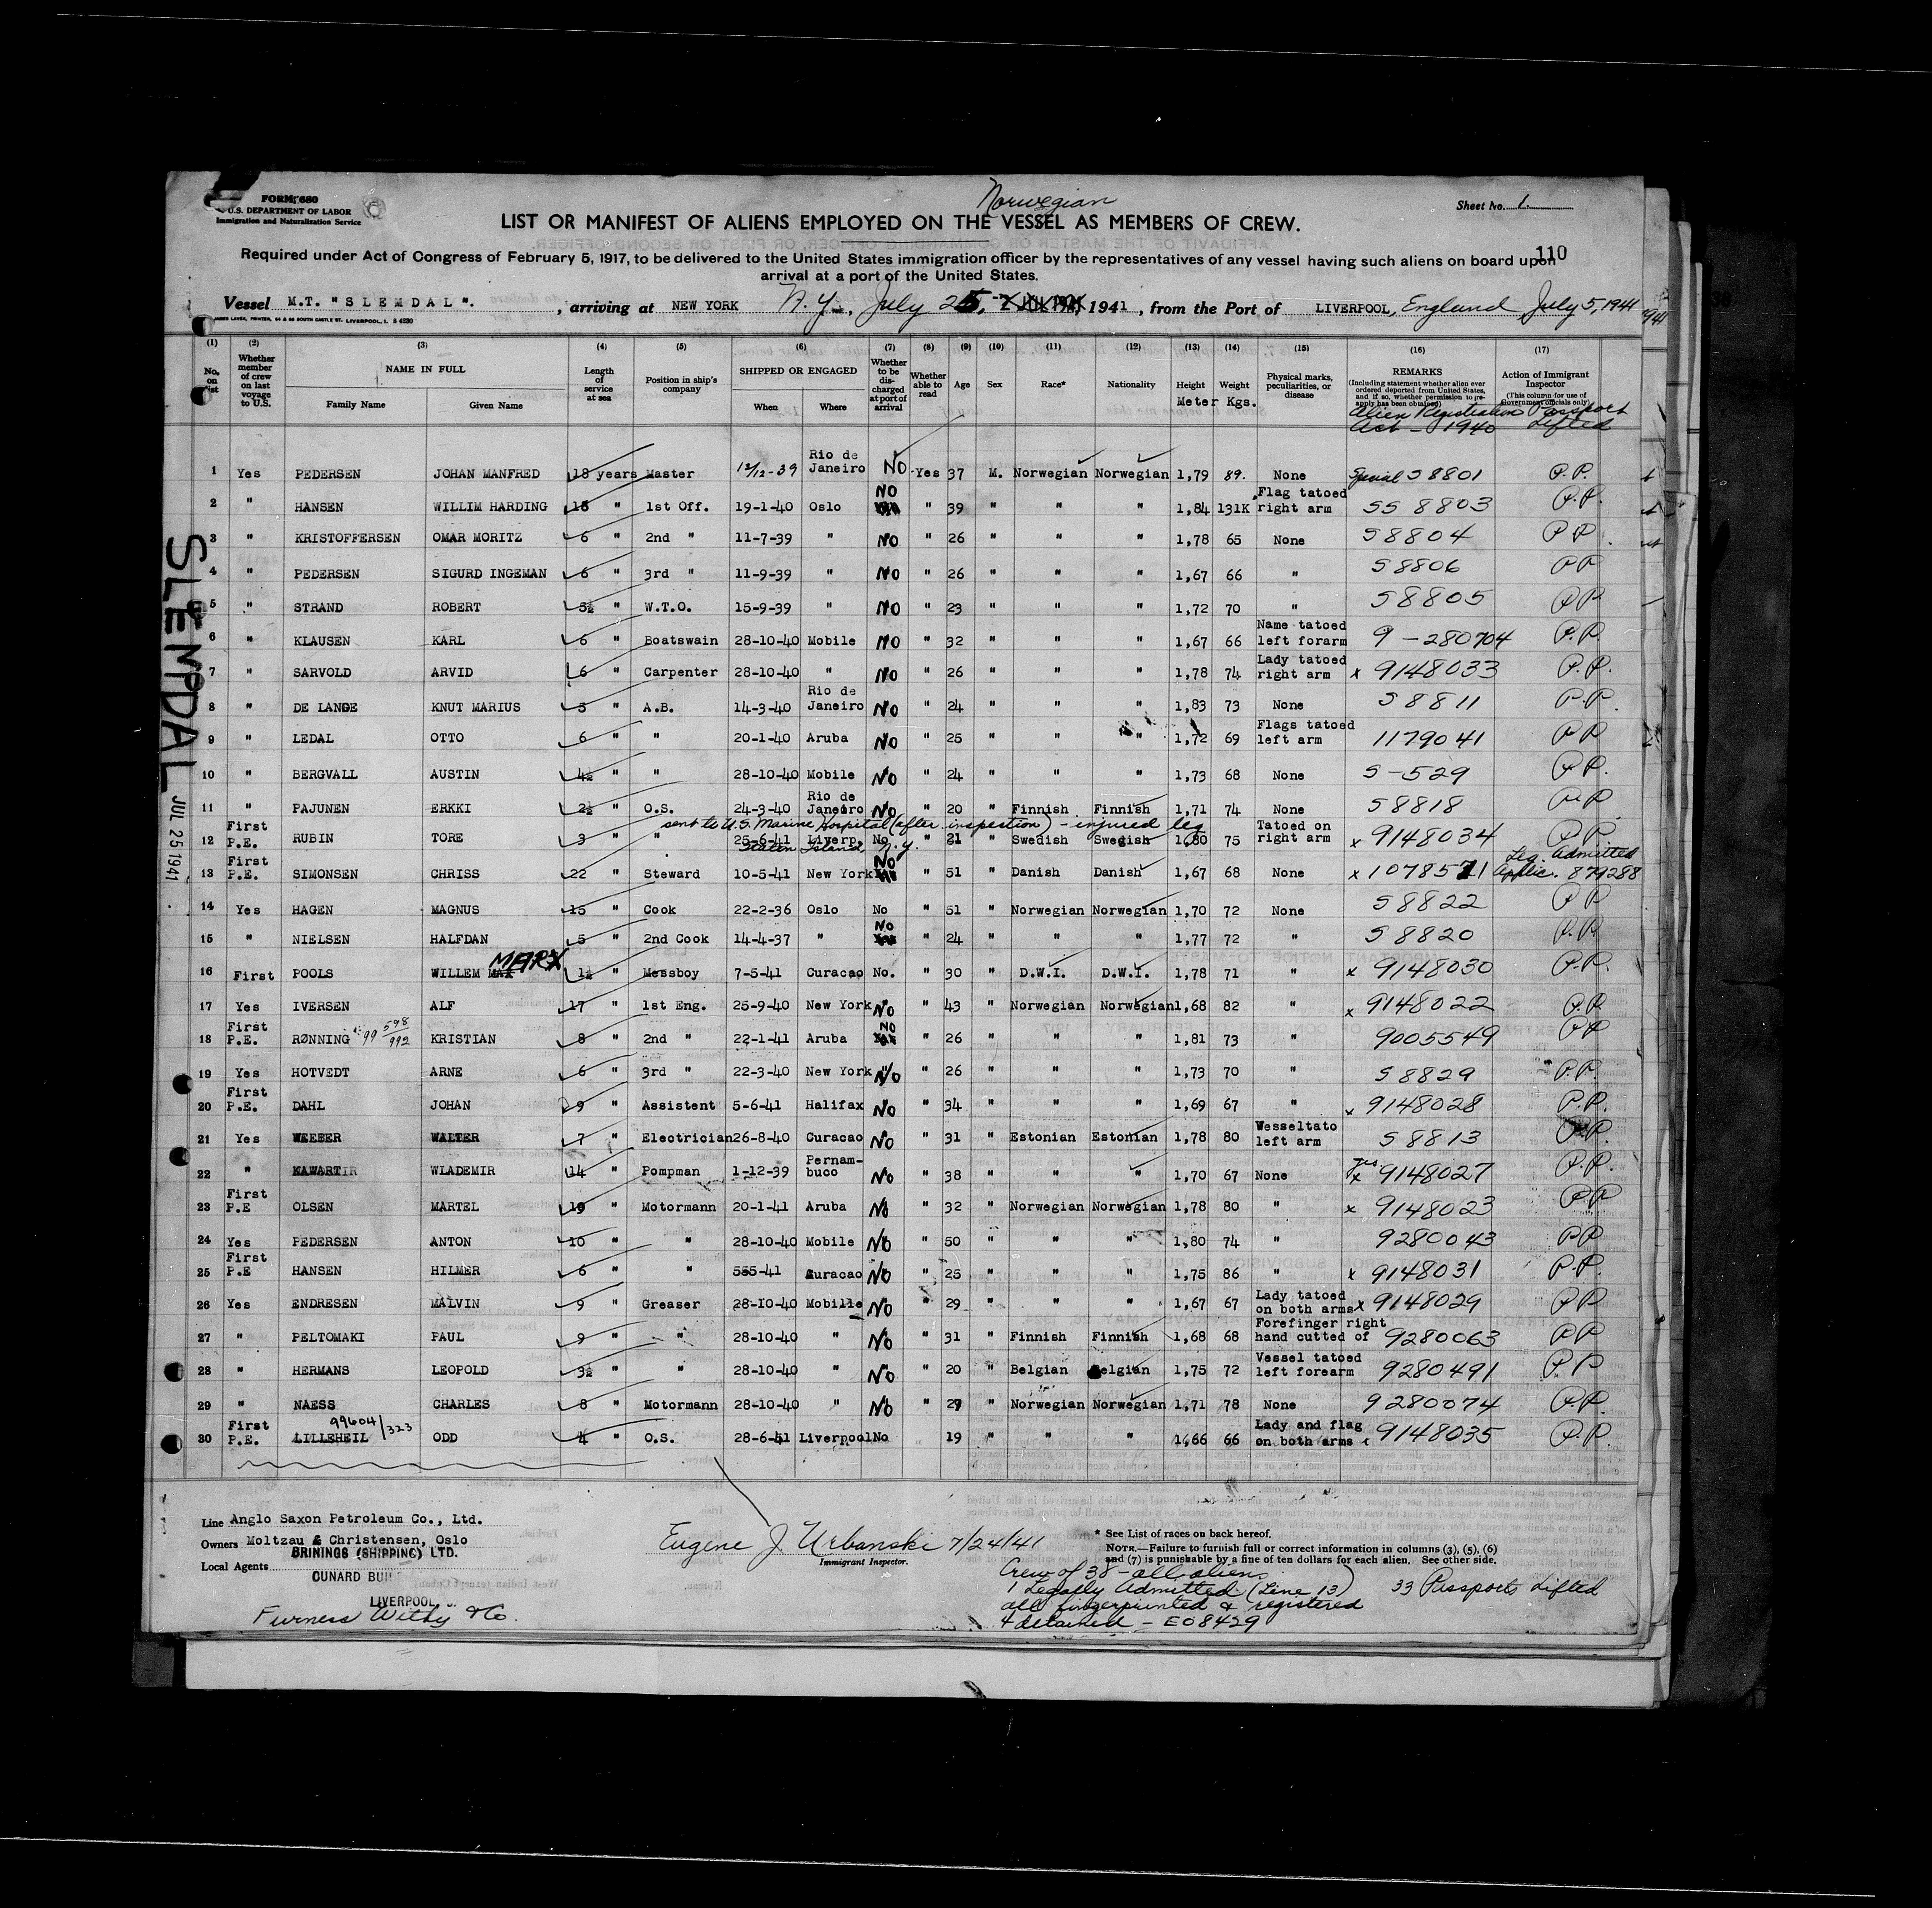 FORM 680
U.S. DEPARTMENT OF LABOR
Immigration and Naturalization Service
Norwegian
Sheet No. 1
LIST OR MANIFEST OF ALIENS EMPLOYED ON THE VESSEL AS MEMBERS OF CREW.
110
Required under Act of Congress of February 5, 1917, to be delivered to the United States immigration officer by the representatives of any vessel having such aliens on board upon
arrival at a port of the United States.
Vessel M.T. "SLEMDAL". , arriving at NEW YORK N.Y., July 25, 1941, from the Port of LIVERPOOL, England July 5, 1941
(1) (2) (3) (4) (5) (6) (7) (8) (9) (10) (11) (12) (13) (14) (15) (16) (17)
No. on list
Whether member of crew on last voyage to U.S.
NAME IN FULL
Family Name Given Name
Length of service at sea
Position in ship's company
SHIPPED OR ENGAGED
When Where
Whether to be discharged at port of arrival
Whether able to read
Age Sex Race* Nationality
Height Meter
Weight Kgs.
Physical marks, peculiarities, or disease
REMARKS
(Including statement whether alien ever ordered deported from United States, and if so, whether permission to reapply has been obtained)
Alien Registration Act - 1940
Action of Immigrant Inspector
(This column for use of Government officials only)
Passport Lifted
1 Yes PEDERSEN JOHAN MANFRED 18 years Master 12/12-39 Rio de Janeiro NO Yes 37 M. Norwegian Norwegian 1,79 89. None Special S8801 P.P.
2 " HANSEN WILLIM HARDING 18 " 1st Off. 19-1-40 Oslo NO " 39 " " " 1,84 131K Flag tatoed right arm SS 8803 P.P.
3 " KRISTOFFERSEN OMAR MORITZ 6 " 2nd " 11-7-39 " NO " 26 " " " 1,78 65 None S8804 PP.
4 " PEDERSEN SIGURD INGEMAN 6 " 3rd " 11-9-39 " NO " 26 " " " 1,67 66 " S8806 PP
5 " STRAND ROBERT 5½ " W.T.O. 15-9-39 " NO " 23 " " " 1,72 70 " S8805 PP
6 " KLAUSEN KARL 6 " Boatswain 28-10-40 Mobile NO " 32 " " " 1,67 66 Name tatoed left forarm 9-280704 P.P.
7 " SARVOLD ARVID 6 " Carpenter 28-10-40 " NO " 26 " " " 1,78 74 Lady tatoed right arm x 9148033 P.P.
8 " DE LANGE KNUT MARIUS 5 " A.B. 14-3-40 Rio de Janeiro NO " 24 " " " 1,83 73 None S8811 P.P.
9 " LEDAL OTTO 6 " " 20-1-40 Aruba NO " 25 " " " 1,72 69 Flags tatoed left arm 1179041 PP
10 " BERGVALL AUSTIN 4½ " " 28-10-40 Mobile NO " 24 " " " 1,73 68 None S-529 PP.
11 " PAJUNEN ERKKI 2½ " O.S. 24-3-40 Rio de Janeiro NO " 20 " Finnish Finnish 1,71 74 None S8818 PP
sent to U.S. Marine Hospital (after inspection) - injured leg
12 First P.E. RUBIN TORE 3 " " 25-6-41 Liverp. No " 21 " Swedish Swedish 1,80 75 Tatoed on right arm x 9148034 PP
Staten Island, N.Y.
13 First P.E. SIMONSEN CHRISS 22 " Steward 10-5-41 New York NO " 51 " Danish Danish 1,67 68 None x 1078571 Leg. Admitted Applic. 879288
14 Yes HAGEN MAGNUS 15 " Cook 22-2-36 Oslo No " 51 " Norwegian Norwegian 1,70 72 None S8822 PP
15 " NIELSEN HALFDAN 5 " 2nd Cook 14-4-37 " NO " 24 " " " 1,77 72 " S8820 P.P.
16 First POOLS WILLEM MAX MARX 1½ " Messboy 7-5-41 Curacao No. " 30 " D.W.I. D.W.I. 1,78 71 " x 9148030 P.P.
17 Yes IVERSEN ALF 17 " 1st Eng. 25-9-40 New York No " 43 " Norwegian Norwegian 1,68 82 " x 9148022 P.P.
18 First P.E. RØNNING 99 598/992 KRISTIAN 8 " 2nd " 22-1-41 Aruba NO " 26 " " " 1,81 73 " 9005549 PP
19 Yes HOTVEDT ARNE 6 " 3rd " 22-3-40 New York No " 26 " " " 1,73 70 " S8829 P.P.
20 First P.E. DAHL JOHAN 9 " Assistent 5-6-41 Halifax NO " 34 " " " 1,69 67 " x 9148028 P.P.
21 Yes WEEBER WALTER 7 " Electrician 26-8-40 Curacao NO " 31 " Estonian Estonian 1,78 80 Wesseltato left arm S8813 P.P.
22 " WLADEMIR 14 " Pompman 1-12-39 Pernambuco No " 38 " " " 1,70 67 None x 9148027 P.P.
23 First P.E OLSEN MARTEL 19 " Motormann 20-1-41 Aruba No " 32 " Norwegian Norwegian 1,78 80 " x 9148023 PP
24 Yes PEDERSEN ANTON 10 " " 28-10-40 Mobile NO " 50 " " " 1,80 74 " 9280043 PP
25 First P.E HANSEN HILMER 6 " " 5-5-41 Curacao NO " 25 " " " 1,75 86 " x 9148031 P.P.
26 Yes ENDRESEN MALVIN 9 " Greaser 28-10-40 Mobille NO " 29 " " " 1,67 67 Lady tatoed on both arms x 9148029 PP
27 " PELTOMAKI PAUL 9 " " 28-10-40 " NO " 31 " Finnish Finnish 1,68 68 Forefinger right hand cutted of 9280063 PP
28 " HERMANS LEOPOLD 3½ " " 28-10-40 " No " 20 " Belgian Belgian 1,75 72 Vessel tatoed left forearm 9280491 P.P
29 " NAESS CHARLES 8 " Motormann 28-10-40 " NO " 29 " Norwegian Norwegian 1,71 78 None 9280074 PP.
30 First P.E. LILLEHEIL 99604/323 ODD 4 " O.S. 28-6-41 Liverpool No 19 " " " 1,66 66 Lady and flag on both arms x 9148035 P.P.
SLEMDAL JUL 25 1941
Line Anglo Saxon Petroleum Co., Ltd.
Owners Moltzau & Christensen, Oslo
Local Agents BRININGS (SHIPPING) LTD.
CUNARD BUI
LIVERPOOL
Furness Withy & Co.
Eugene J Urbanski 7/24/41
Immigrant Inspector.
* See List of races on back hereof.
NOTE.—Failure to furnish full or correct information in columns (3), (5), (6)
and (7) is punishable by a fine of ten dollars for each alien. See other side.
Crew of 38 - all aliens
1 Legally Admitted (Line 13)
all fingerprinted & registered
4 detained - E08429
33 Passports Lifted